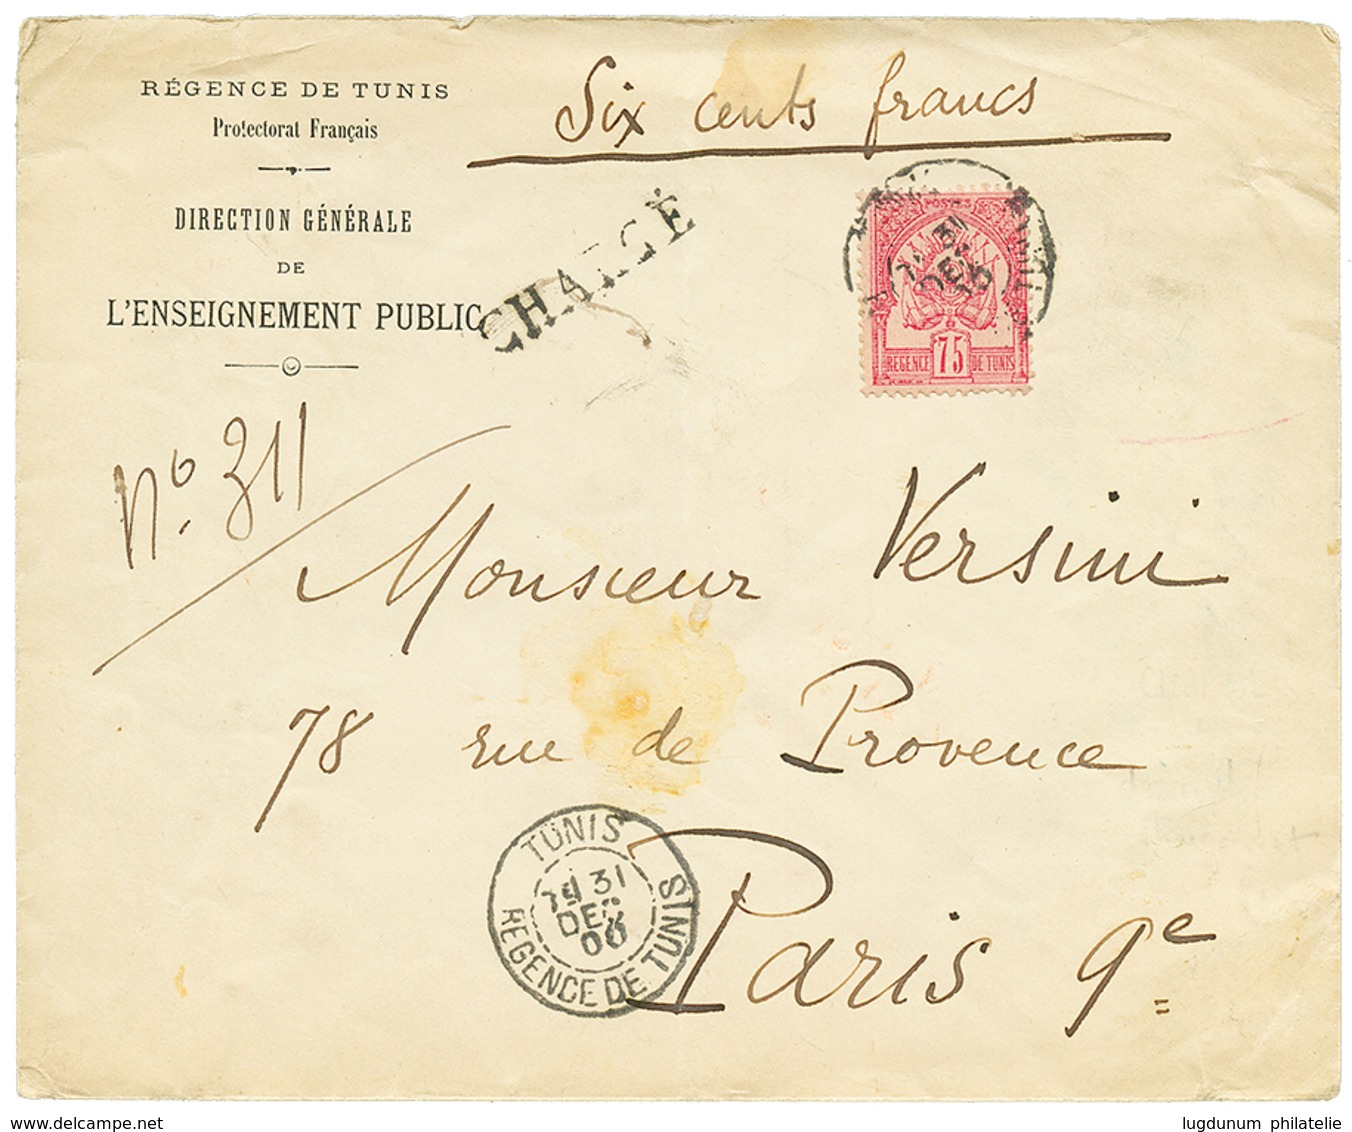 RÉGENCE DE TUNIS
Protectorat Français
DIRECTION GÉNÉRALE
DE
L'ENSEIGNEMENT PUBLIC
Six cents francs
CHARGÉ
POSTES
75
REGENCE DE TUNIS
31
DEC
No. 311
Monsieur Versini
78 rue de Provence
Paris 9e
TUNIS
31
DEC
00
REGENCE DE TUNIS
www.delcampe.net
lugdunum philatelie